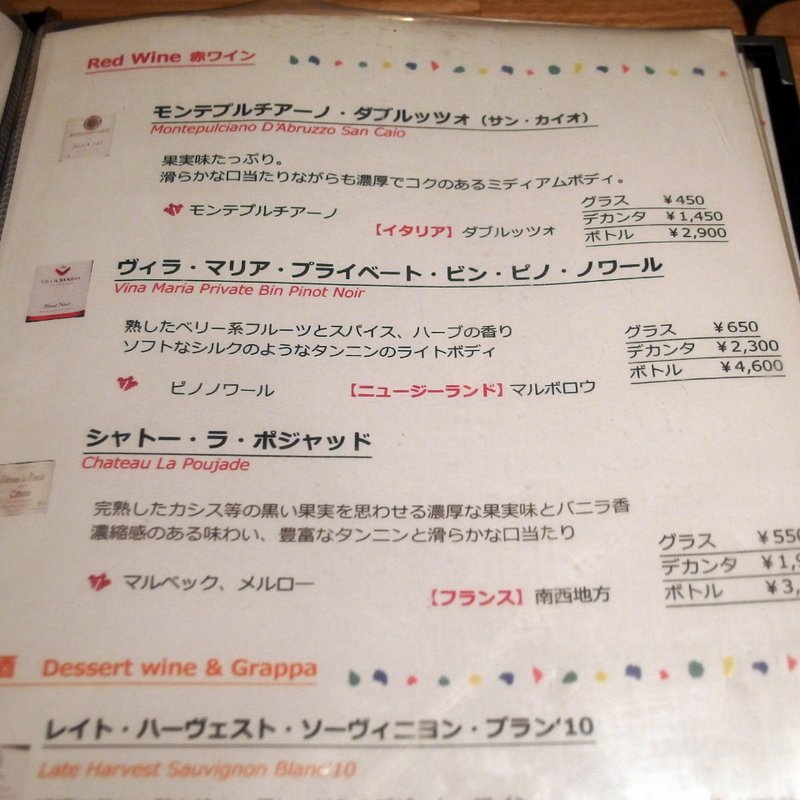 Red Wine 赤ワイン
モンテプルチアーノ・ダブルッツォ（サン・カイオ）
Montepulciano D'Abruzzo San Caio
果実味たっぷり。
滑らかな口当たりながらも濃厚でコクのあるミディアムボディ。
グラス ￥450
デカンタ ￥1,450
ボトル ￥2,900
モンテプルチアーノ 【イタリア】ダブルッツォ
VILLA MARIA
Pinot Noir
ヴィラ・マリア・プライベート・ビン・ピノ・ノワール
Vina Maria Private Bin Pinot Noir
熟したベリー系フルーツとスパイス、ハーブの香り
ソフトなシルクのようなタンニンのライトボディ
グラス ￥650
デカンタ ￥2,300
ボトル ￥4,600
ピノノワール 【ニュージーランド】マルボロウ
シャトー・ラ・ポジャッド
Chateau La Poujade
完熟したカシス等の黒い果実を思わせる濃厚な果実味とバニラ香
濃縮感のある味わい、豊富なタンニンと滑らかな口当たり
グラス ￥550
デカンタ ￥1,9
ボトル ￥3,
マルベック、メルロー 【フランス】南西地方
酒 Dessert wine & Grappa
レイト・ハーヴェスト・ソーヴィニヨン・ブラン'10
Late Harvest Sauvignon Blanc'10